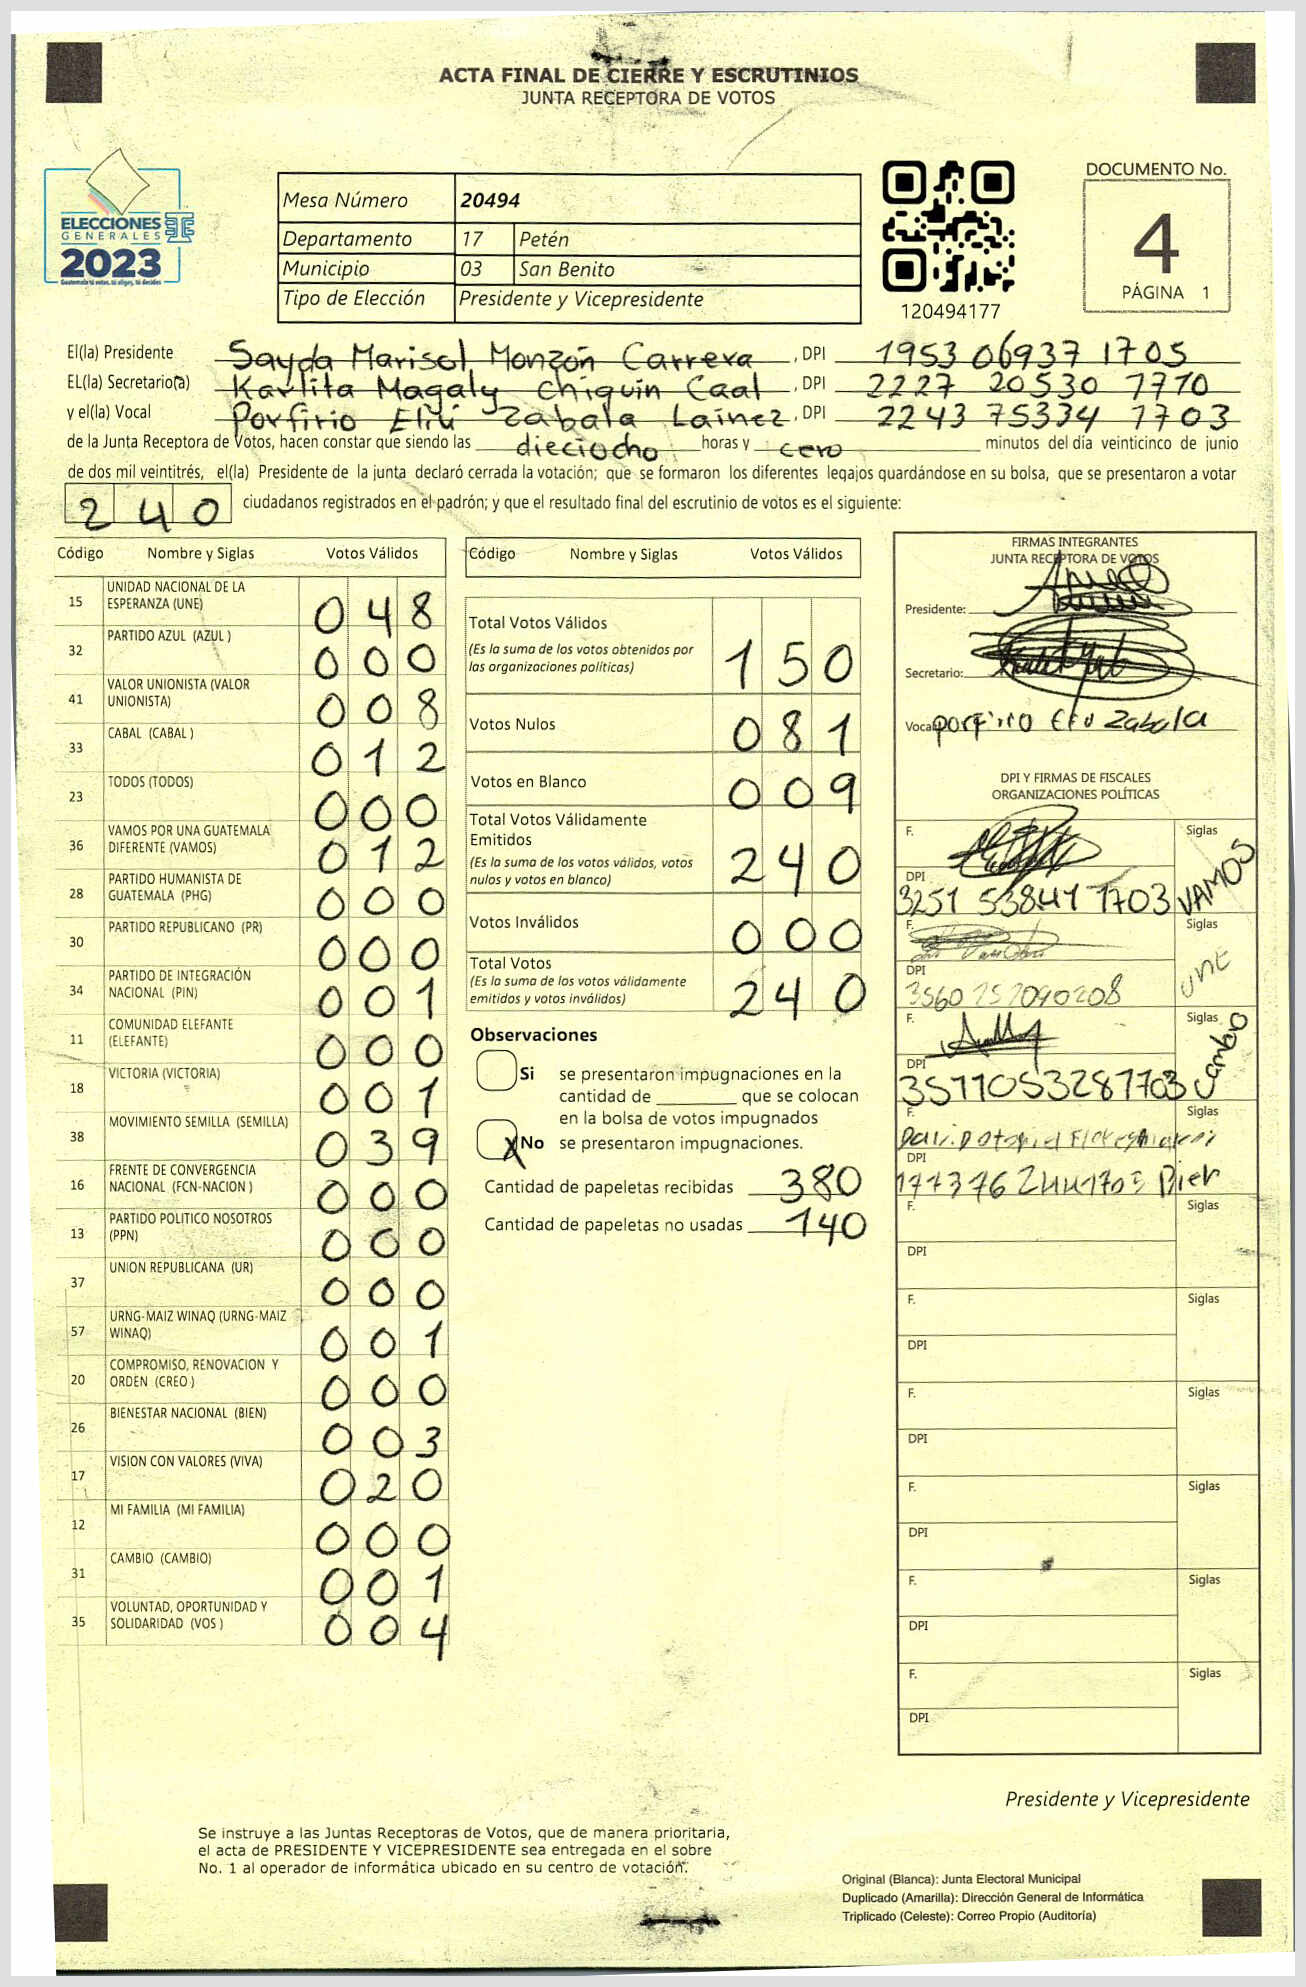 ACTA FINAL DE CIERRE Y ESCRUTINIOS
JUNTA RECEPTORA DE VOTOS
ELECCIONES
GENERALES
2023
Guatemala tú votas, tú eliges, tú decides
Mesa Número 20494
Departamento 17 Petén
Municipio 03 San Benito
Tipo de Elección Presidente y Vicepresidente
120494177
DOCUMENTO No.
4
PÁGINA 1
El(la) Presidente Sayda Marisol Monzón Carrera , DPI 1953 06937 1705
EL(la) Secretario(a) Karlita Magaly Chiquín Caal , DPI 2227 20530 1710
y el(la) Vocal Porfirio Eliú Zabala Lainez , DPI 2243 75334 1703
de la Junta Receptora de Votos, hacen constar que siendo las dieciocho horas y cero minutos del día veinticinco de junio
de dos mil veintitrés, el(la) Presidente de la junta declaró cerrada la votación; que se formaron los diferentes legajos guardándose en su bolsa, que se presentaron a votar
240 ciudadanos registrados en el padrón; y que el resultado final del escrutinio de votos es el siguiente:
Código Nombre y Siglas Votos Válidos
15 UNIDAD NACIONAL DE LA
ESPERANZA (UNE) 048
32 PARTIDO AZUL (AZUL ) 000
41 VALOR UNIONISTA (VALOR
UNIONISTA) 008
33 CABAL (CABAL ) 012
23 TODOS (TODOS) 000
36 VAMOS POR UNA GUATEMALA
DIFERENTE (VAMOS) 012
28 PARTIDO HUMANISTA DE
GUATEMALA (PHG) 000
30 PARTIDO REPUBLICANO (PR) 000
34 PARTIDO DE INTEGRACIÓN
NACIONAL (PIN) 001
11 COMUNIDAD ELEFANTE
(ELEFANTE) 000
18 VICTORIA (VICTORIA) 001
38 MOVIMIENTO SEMILLA (SEMILLA) 039
16 FRENTE DE CONVERGENCIA
NACIONAL (FCN-NACION ) 000
13 PARTIDO POLITICO NOSOTROS
(PPN) 000
37 UNION REPUBLICANA (UR) 000
57 URNG-MAIZ WINAQ (URNG-MAIZ
WINAQ) 001
20 COMPROMISO, RENOVACION Y
ORDEN (CREO ) 000
26 BIENESTAR NACIONAL (BIEN) 003
17 VISION CON VALORES (VIVA) 020
12 MI FAMILIA (MI FAMILIA) 000
31 CAMBIO (CAMBIO) 001
35 VOLUNTAD, OPORTUNIDAD Y
SOLIDARIDAD (VOS ) 004
Código Nombre y Siglas Votos Válidos
Total Votos Válidos
(Es la suma de los votos obtenidos por
las organizaciones políticas) 150
Votos Nulos 081
Votos en Blanco 009
Total Votos Válidamente
Emitidos
(Es la suma de los votos válidos, votos
nulos y votos en blanco) 240
Votos Inválidos 000
Total Votos
(Es la suma de los votos válidamente
emitidos y votos inválidos) 240
Observaciones
Si se presentaron impugnaciones en la
cantidad de ________ que se colocan
en la bolsa de votos impugnados
X No se presentaron impugnaciones.
Cantidad de papeletas recibidas 380
Cantidad de papeletas no usadas 140
FIRMAS INTEGRANTES
JUNTA RECEPTORA DE VOTOS
Presidente:
Secretario:
Vocal: Porfirio Eliu Zabala
DPI Y FIRMAS DE FISCALES
ORGANIZACIONES POLÍTICAS
F. Siglas
DPI
3251 53841 1703 VAMOS
F. Siglas
DPI
UNE
F. Siglas
DPI
3571053281703 Cambio
F. Siglas
DPI
Bien
F. Siglas
DPI
F. Siglas
DPI
F. Siglas
DPI
F. Siglas
DPI
F. Siglas
DPI
F. Siglas
DPI
Presidente y Vicepresidente
Se instruye a las Juntas Receptoras de Votos, que de manera prioritaria,
el acta de PRESIDENTE Y VICEPRESIDENTE sea entregada en el sobre
No. 1 al operador de informática ubicado en su centro de votación.
Original (Blanca): Junta Electoral Municipal
Duplicado (Amarilla): Dirección General de Informática
Triplicado (Celeste): Correo Propio (Auditoría)